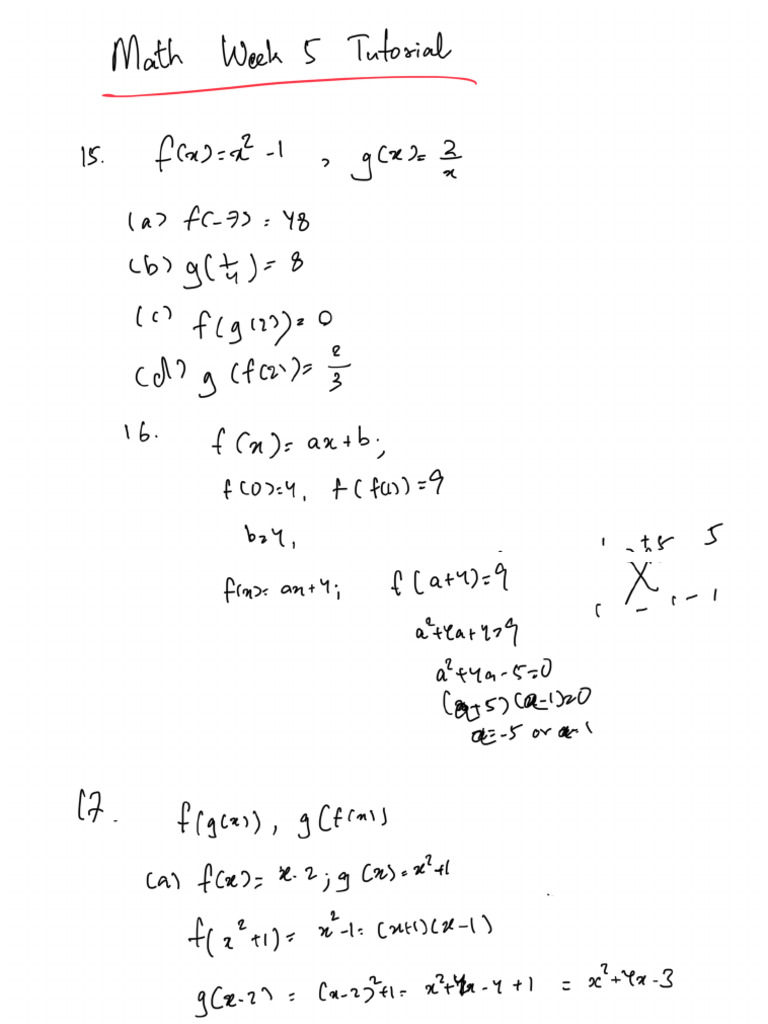 Math Week 5 Tutorial
15. f(x)=x² -1 , g(x)= 2/x
(a) f(-7) = 48
(b) g(1/4) = 8
(c) f(g(2))= 0
(d) g(f(2))= 2/3
16. f(x)= ax+b;
f(0)=4, f(f(1))=9
b=4,
f(x)= ax+4; f(a+4)=9
a²+4a+4=9
a²+4a-5=0
(a+5)(a-1)=0
a=-5 or a=1
17. f(g(x)), g(f(x))
(a) f(x)= x-2; g(x)=x²+1
f(x²+1)= x²-1= (x+1)(x-1)
g(x-2) = (x-2)²+1= x²+4x-4+1 = x²+4x-3